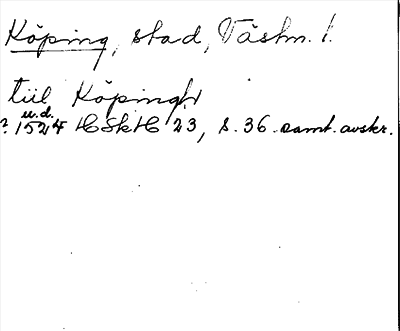 Köping, stad, Västm. l.
till Köpingh
u.d.
? 1524 HSkH 23, s. 36 samt. avskr.